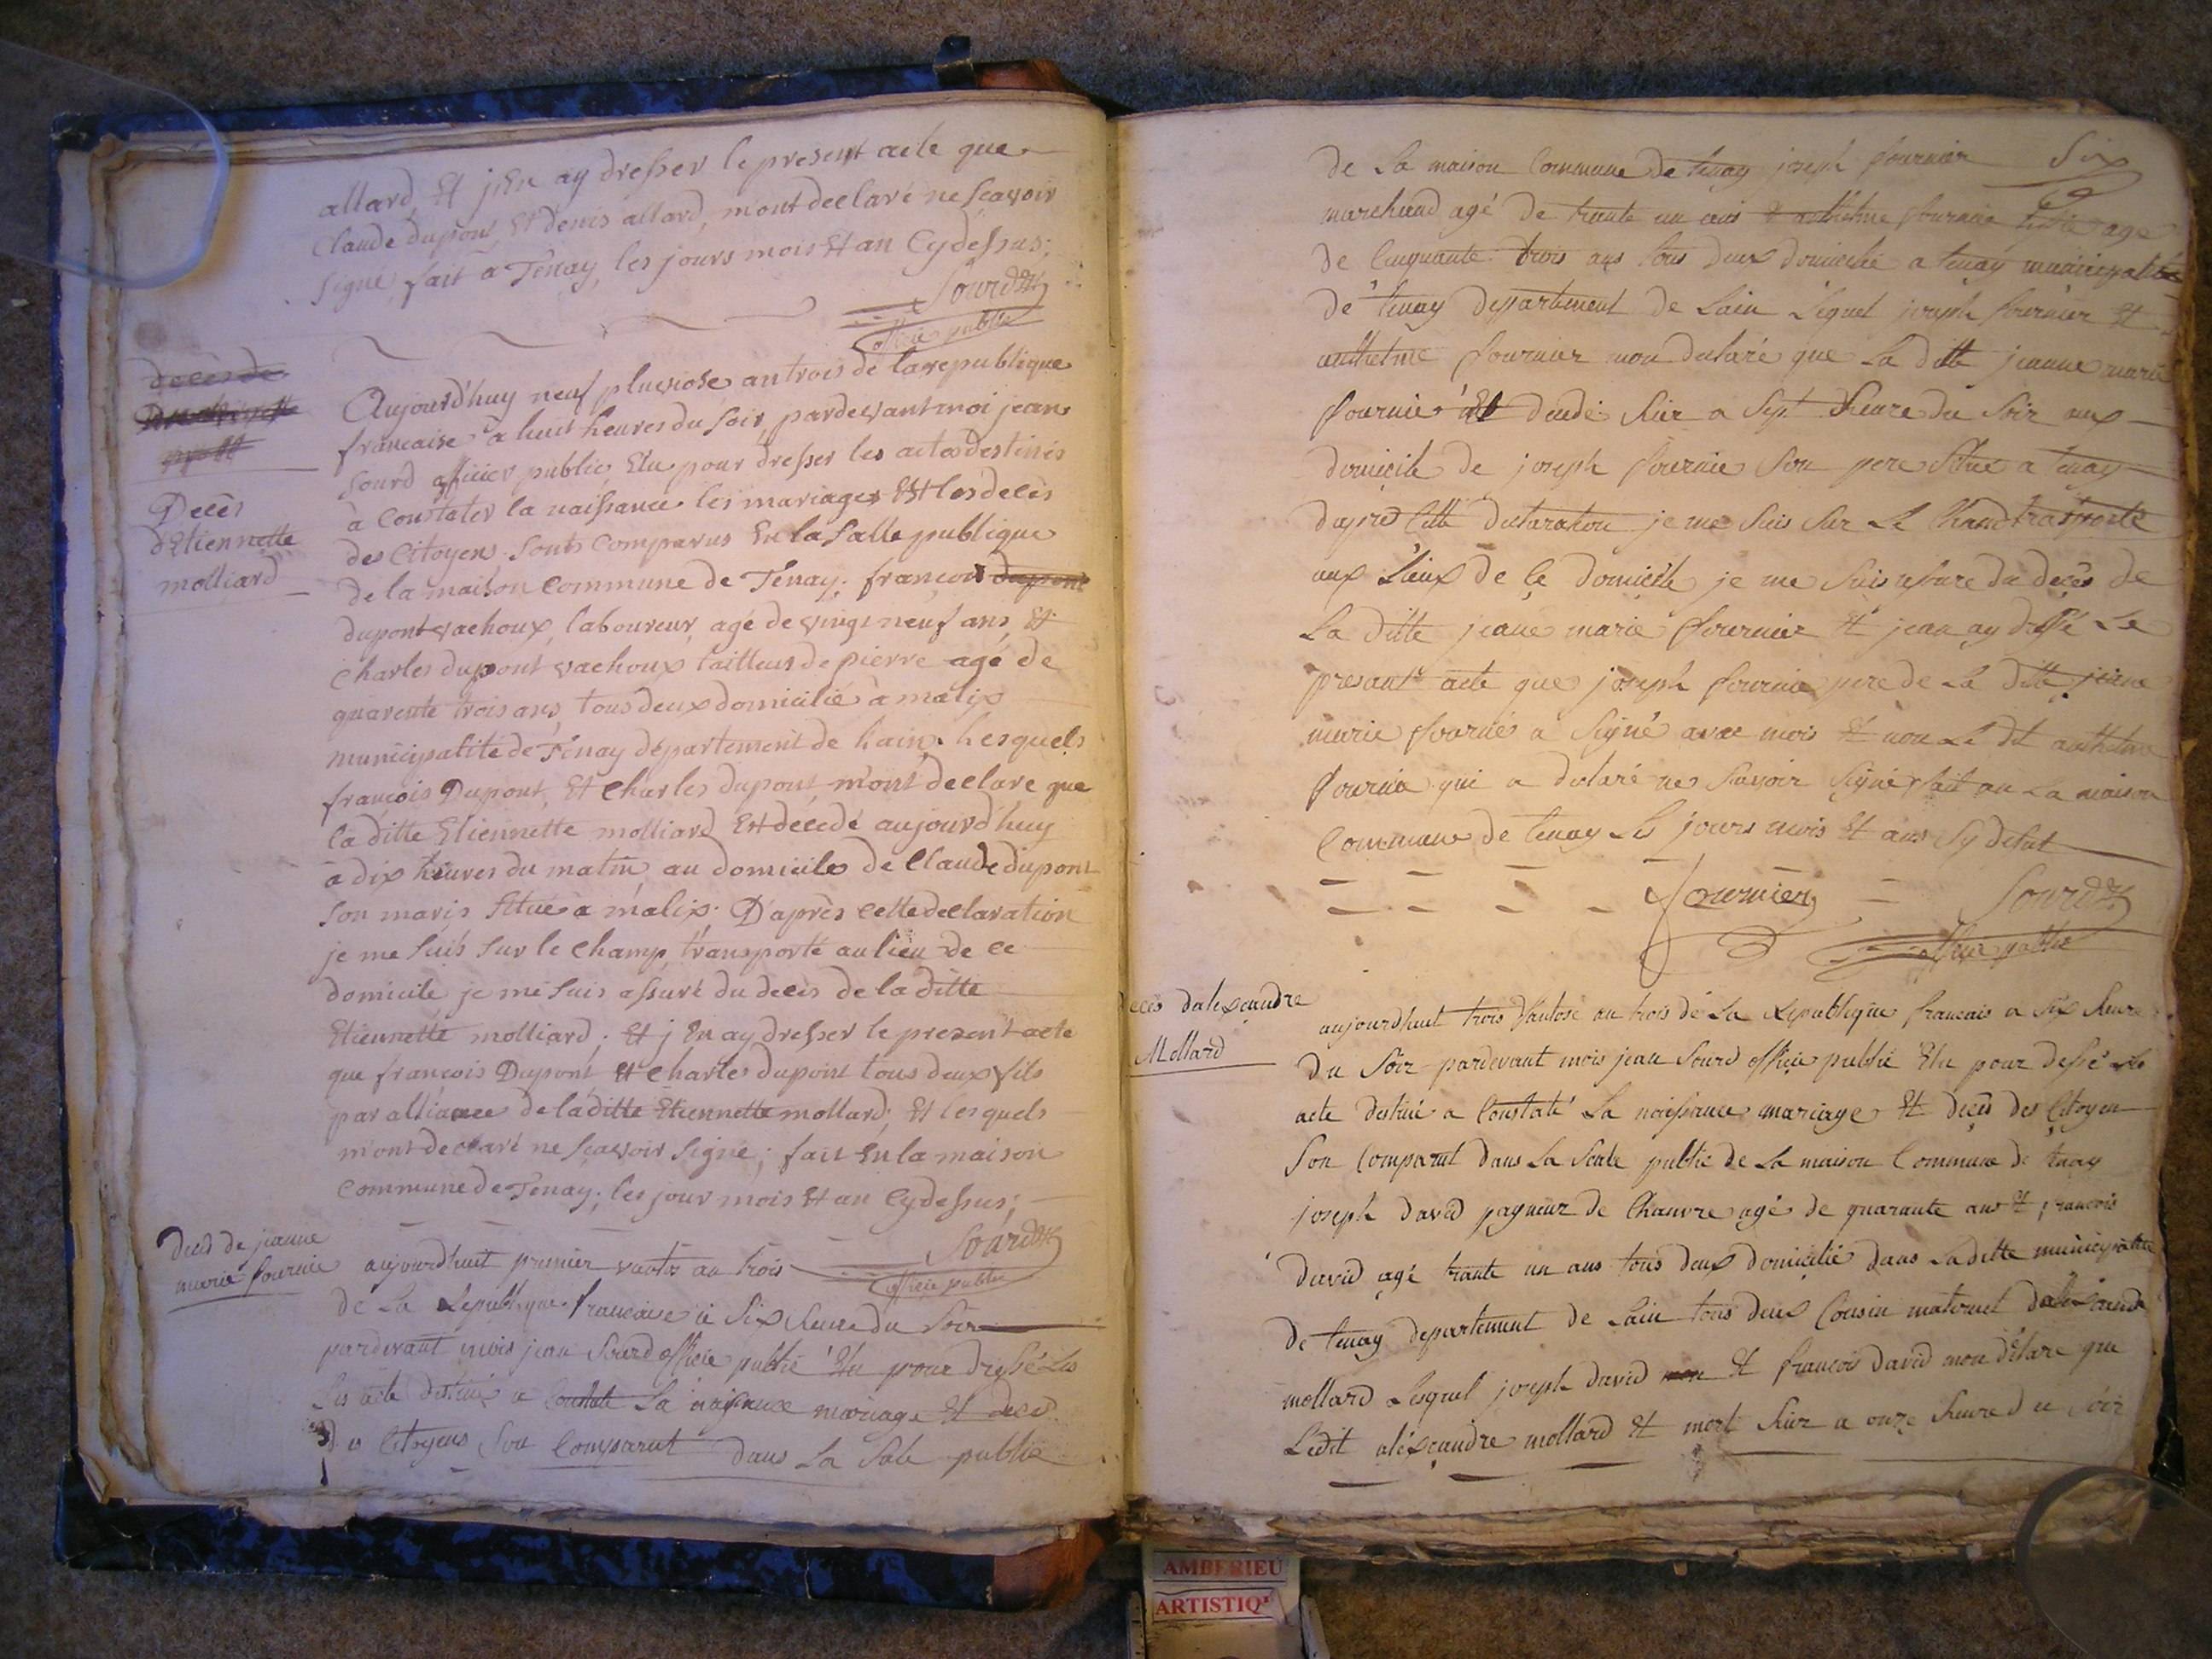 allard, Et jEn ay dresser le present acte que
Claude dupont, Et denis allard, m'ont declaré ne scavoir
signé, fait a Tenay, les jours mois Et an Cydessus;
Sourd
officié public
decès de
Decès
d'Etiennette
molliard
Aujourd'huy neuf pluviose an trois de la republique
francaise a huit heures du soir, pardevant moi jean
sourd officier public, Elu pour dresser les actes destinés
à Constater la naissance les mariages Et les decès
des Citoyens. sonts Comparus En la salle publique
de la maison Commune de Tenay. francois dupont
dupont vachoux, laboureur, agé de vingt neuf ans, Et
Charles dupont vachoux tailleur de pierre agé de
quarente trois ans, tous deux domicilié à malix
municipalité de Tenay département de Lain. Lesquels
francois Dupont, Et Charles dupont m'ont declare que
la ditte Etiennette molliard Est décédé aujourd'huy
a dix heures du matin, au domicile de Claude dupont
son maris situé a malix. D'après cette declaration
je me suis sur le champ transporté au lieu de ce
domicile je me suis assuré du decès de la ditte
Etiennette molliard; Et j En ay dresser le present acte
que francois Dupont Et Charles dupont tous deux fils
par alliance de laditte Etiennette mollard; Et lesquels
m'ont declaré ne scavoir signé; fait En la maison
Commune de Tenay; les jour mois Et an Cydessus;
Sourd
officié public
deces de jeanne
marie fournie
aujourdhuit premier vantos an trois
de La Republique francaise a Six heure du Soir
pardevant mois jean Sourd officié public Elu pour dressé Les
Les acte destiné a Constaté La naissance mariage Et deces
des Citoyens Son Comparut dans La Sale public
Six
de La maison Commune de tenay joseph fournier
marchand agé de trante un ans Et anthelme fournie agé
de Cinquante trois ans tous deux domicilié a tenay municipalité
de tenay departement de Lain Lequel joseph fournier Et
anthelme fournier mon declaré que La ditte jeanne marie
fournie Et decedé hier a Sept heure du Soir aux
domicile de joseph fournie Son pere Situé a tenay
dapred Cette declaration je me Suis Sur Le Chand trasporté
aux Lieux de Ce domicile je me Suis assure du decès de
La ditte jeane marie fournier Et jean ay dressé Le
presant acte que joseph fournie pere de La ditte jeane
marie fournie a Signé avec mois Et non Le dit anthelme
fournie qui a declaré ne Savoir Signé fait an La maison
Commune de tenay Les jours mois Et ans Sy desut
fournier
Sourd
officié public
deces dalexandre
Mollard
aujourdhuit trois Vantose an trois de La Republique francais a Six heure
du Soir pardevant mois jean Sourd officie public Elu pour dessé Les
acte destiné a Constaté La naissance mariage Et decès des Citoyen
Son Comparut dans La Sale public de La maison Commune de tenay
joseph david pagneur de Chanvre agé de quarante ans Et francois
david agé trante un ans tous deux domicilié dans La ditte municipalité
de tenay departement de Lain tous deux Cousin maternel dalexandre
mollard Lesquel joseph david Et francois david mon délare que
Ledit aléxandre mollard Et mort hier a onze heure du Soir
AMBERIEU
ARTISTIQ'